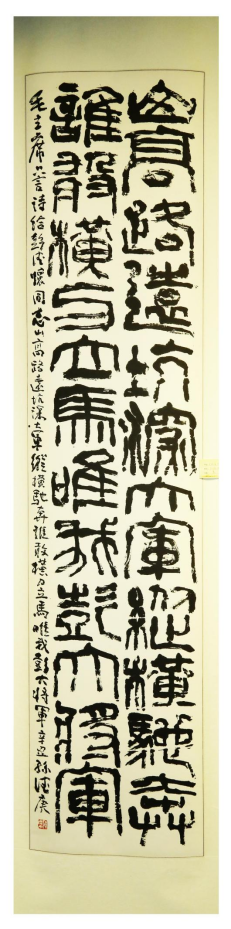 山高路遠坑深大軍縱橫馳奔
誰敢橫刀立馬唯我彭大將軍
毛主席六言詩給彭德懷同志山高路遠坑深大軍縱橫馳奔誰敢橫刀立馬唯我彭大將軍辛丑孫